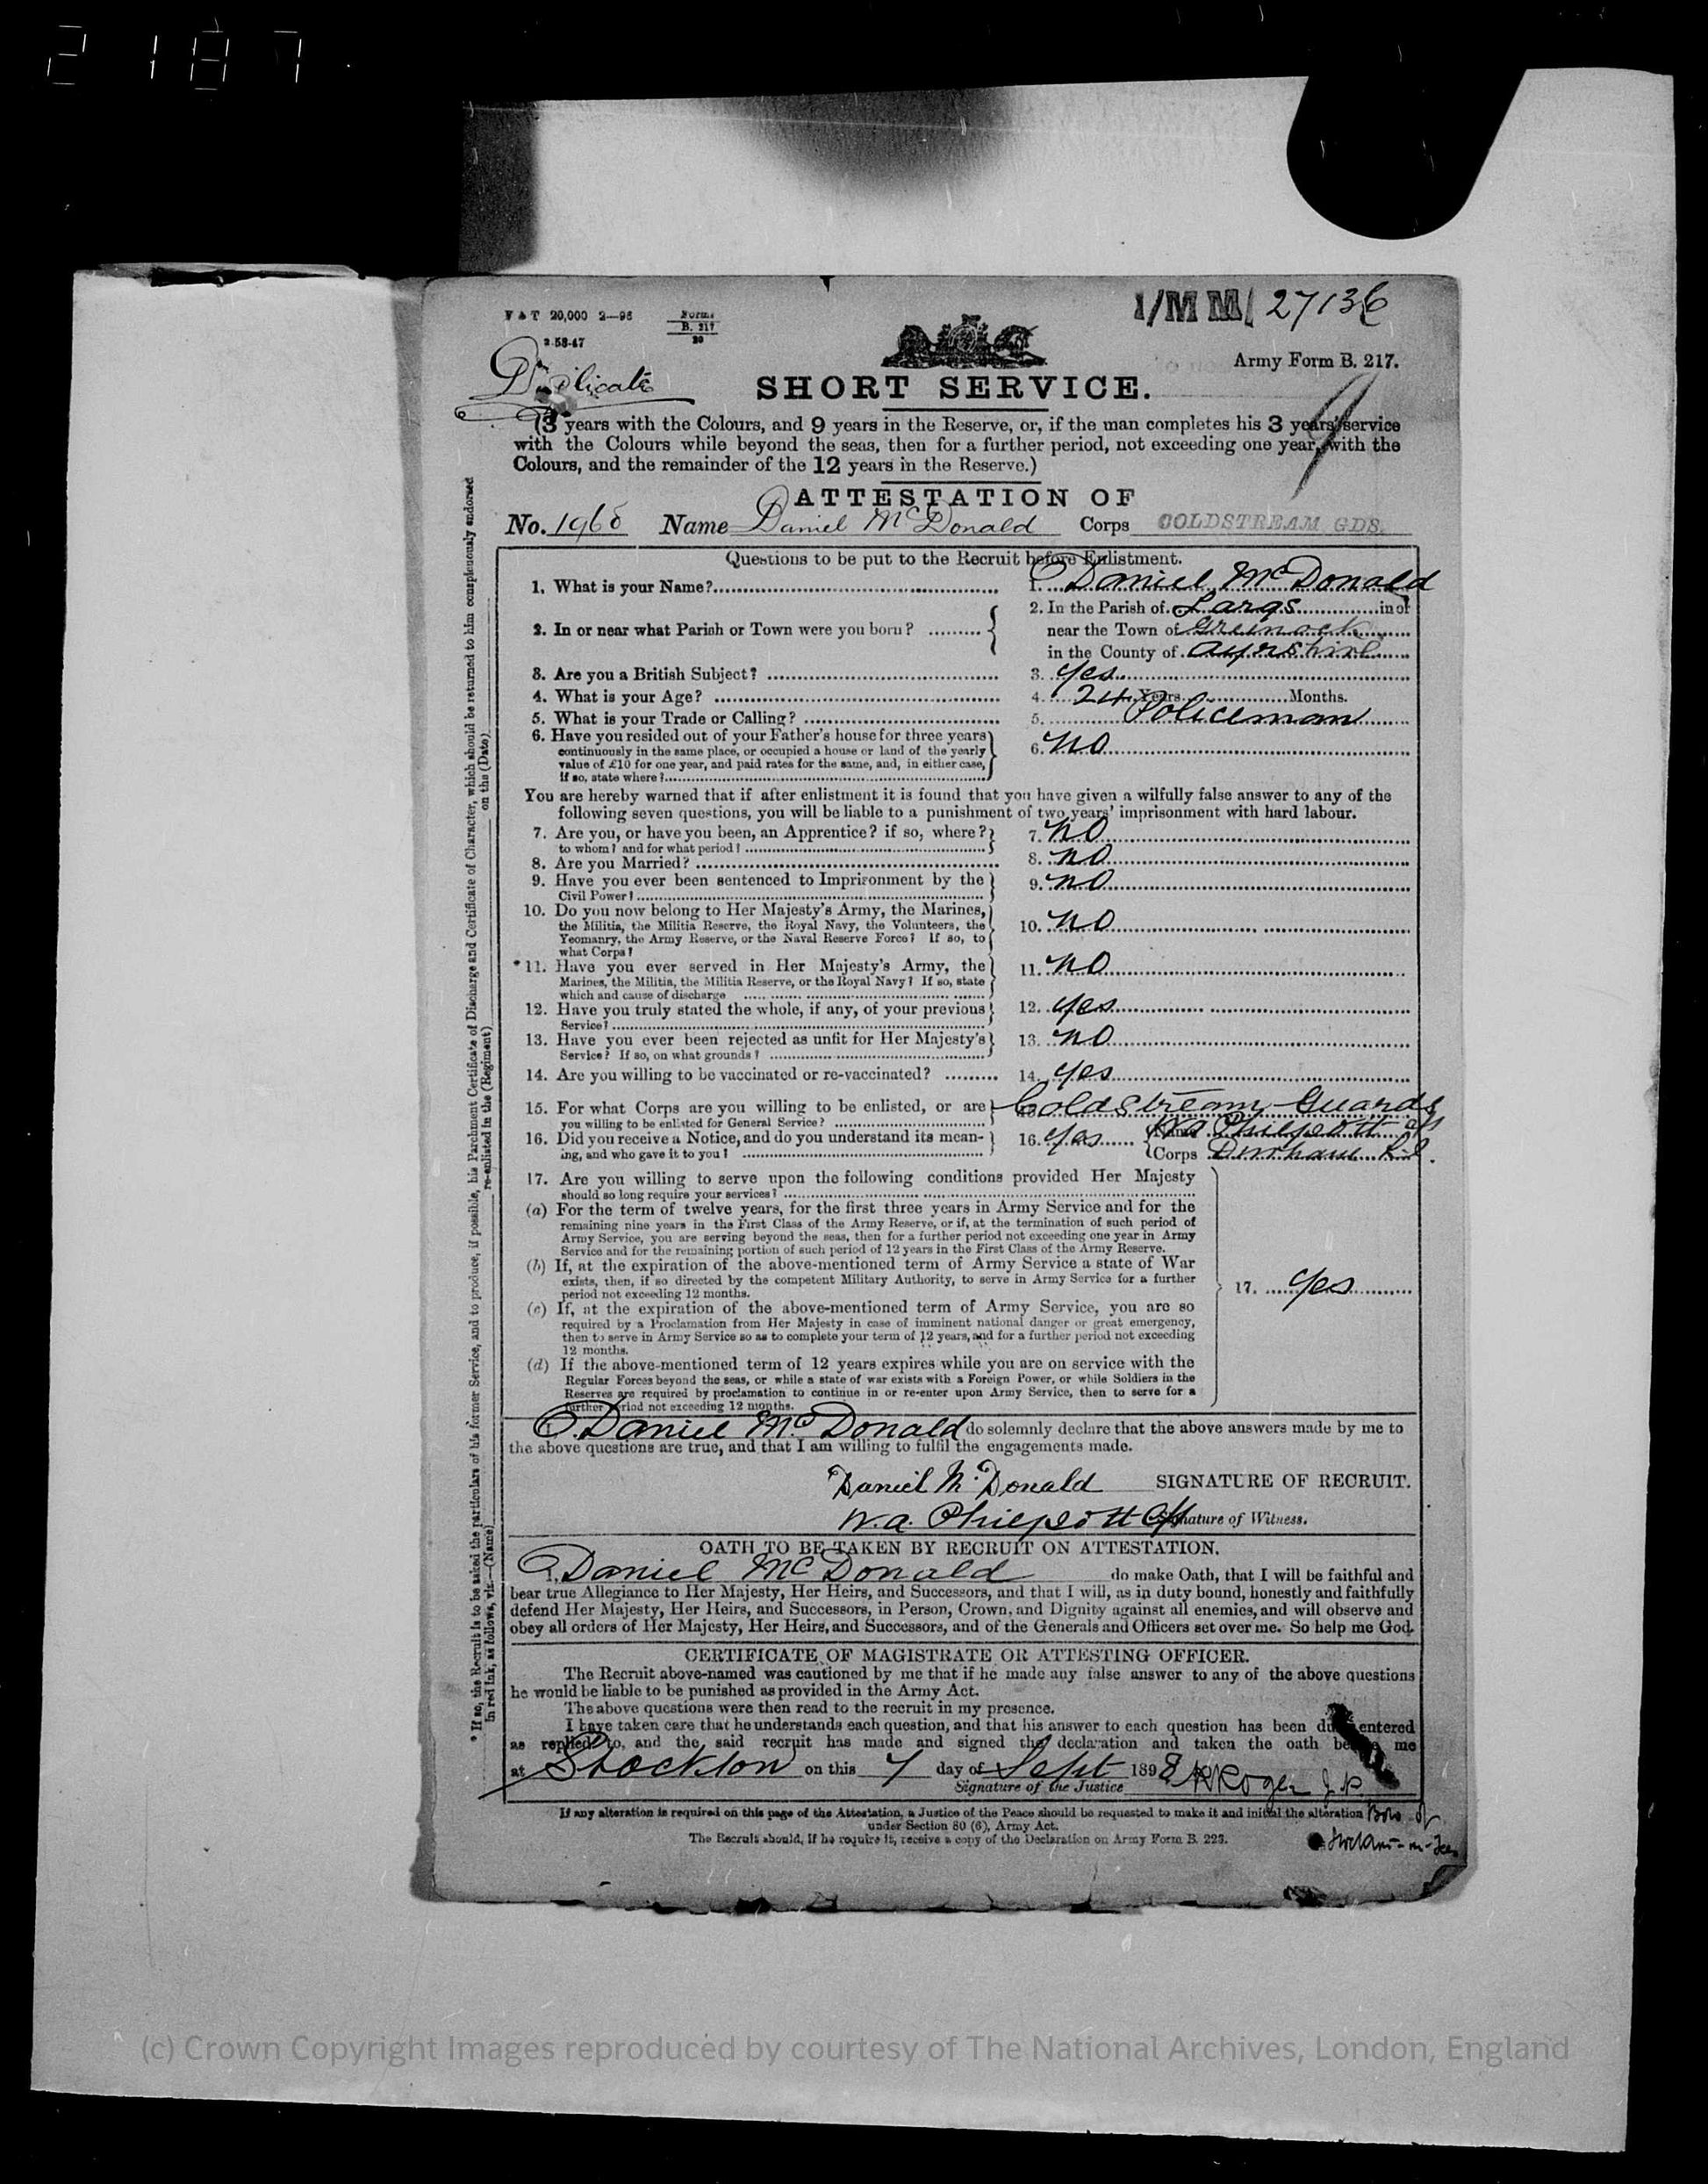 2 1 8 7
V & T 20,000 2—98 Forms B. 217 20
1/MM/ 27136
2.58.47
Army Form B. 217.
Duplicate
SHORT SERVICE.
(3 years with the Colours, and 9 years in the Reserve, or, if the man completes his 3 years' service
with the Colours while beyond the seas, then for a further period, not exceeding one year, with the
Colours, and the remainder of the 12 years in the Reserve.)
ATTESTATION OF
No. 1968 Name Daniel McDonald Corps COLDSTREAM GDS.
Questions to be put to the Recruit before Enlistment.
1. What is your Name? 1. Daniel McDonald
2. In or near what Parish or Town were you born? 2. In the Parish of Largs in or
near the Town of Greenock
in the County of Ayrshire
3. Are you a British Subject? 3. Yes
4. What is your Age? 4. 24 Years Months.
5. What is your Trade or Calling? 5. Policeman
6. Have you resided out of your Father's house for three years 6. No
continuously in the same place, or occupied a house or land of the yearly
value of £10 for one year, and paid rates for the same, and, in either case,
if so, state where?
You are hereby warned that if after enlistment it is found that you have given a wilfully false answer to any of the
following seven questions, you will be liable to a punishment of two years' imprisonment with hard labour.
7. Are you, or have you been, an Apprentice? if so, where? 7. No
to whom? and for what period?
8. Are you Married? 8. No
9. Have you ever been sentenced to Imprisonment by the 9. No
Civil Power?
10. Do you now belong to Her Majesty's Army, the Marines, 10. No
the Militia, the Militia Reserve, the Royal Navy, the Volunteers, the
Yeomanry, the Army Reserve, or the Naval Reserve Force? If so, to
what Corps?
*11. Have you ever served in Her Majesty's Army, the 11. No
Marines, the Militia, the Militia Reserve, or the Royal Navy? If so, state
which and cause of discharge
12. Have you truly stated the whole, if any, of your previous 12. Yes
Service?
13. Have you ever been rejected as unfit for Her Majesty's 13. No
Service? If so, on what grounds?
14. Are you willing to be vaccinated or re-vaccinated? 14. Yes
15. For what Corps are you willing to be enlisted, or are Coldstream Guards
you willing to be enlisted for General Service?
16. Did you receive a Notice, and do you understand its mean- 16. Yes Name W.a. Philpott
ing, and who gave it to you? Corps Durham
17. Are you willing to serve upon the following conditions provided Her Majesty
should so long require your services?
(a) For the term of twelve years, for the first three years in Army Service and for the
remaining nine years in the First Class of the Army Reserve, or if, at the termination of such period of
Army Service, you are serving beyond the seas, then for a further period not exceeding one year in Army
Service and for the remaining portion of such period of 12 years in the First Class of the Army Reserve.
(b) If, at the expiration of the above-mentioned term of Army Service a state of War
exists, then, if so directed by the competent Military Authority, to serve in Army Service for a further
period not exceeding 12 months. 17. Yes
(c) If, at the expiration of the above-mentioned term of Army Service, you are so
required by a Proclamation from Her Majesty in case of imminent national danger or great emergency,
then to serve in Army Service so as to complete your term of 12 years, and for a further period not exceeding
12 months.
(d) If the above-mentioned term of 12 years expires while you are on service with the
Regular Forces beyond the seas, or while a state of war exists with a Foreign Power, or while Soldiers in the
Reserves are required by proclamation to continue in or re-enter upon Army Service, then to serve for a
further period not exceeding 12 months.
I, Daniel McDonald do solemnly declare that the above answers made by me to
the above questions are true, and that I am willing to fulfil the engagements made.
Daniel McDonald SIGNATURE OF RECRUIT.
W.a. Philpott Signature of Witness.
OATH TO BE TAKEN BY RECRUIT ON ATTESTATION.
I, Daniel McDonald do make Oath, that I will be faithful and
bear true Allegiance to Her Majesty, Her Heirs, and Successors, and that I will, as in duty bound, honestly and faithfully
defend Her Majesty, Her Heirs, and Successors, in Person, Crown, and Dignity against all enemies, and will observe and
obey all orders of Her Majesty, Her Heirs, and Successors, and of the Generals and Officers set over me. So help me God.
CERTIFICATE OF MAGISTRATE OR ATTESTING OFFICER.
The Recruit above-named was cautioned by me that if he made any false answer to any of the above questions
he would be liable to be punished as provided in the Army Act.
The above questions were then read to the recruit in my presence.
I have taken care that he understands each question, and that his answer to each question has been duly entered
as replied to, and the said recruit has made and signed the declaration and taken the oath before me
at Stockton on this 7 day of Sept 1898
Signature of the Justice
If any alteration is required on this page of the Attestation, a Justice of the Peace should be requested to make it and initial the alteration
under Section 80 (6), Army Act.
The Recruit should, if he require it, receive a copy of the Declaration on Army Form B. 223.
Boro of
Stockton-on-Tees
* If so, the Recruit is to be asked the particulars of his former Service, and to produce, if possible, his Parchment Certificate of Discharge and Certificate of Character, which should be returned to him conspicuously endorsed
in red ink, as follows, viz.—(Name) re-enlisted in the (Regiment) on the (Date)
(c) Crown Copyright Images reproduced by courtesy of The National Archives, London, England